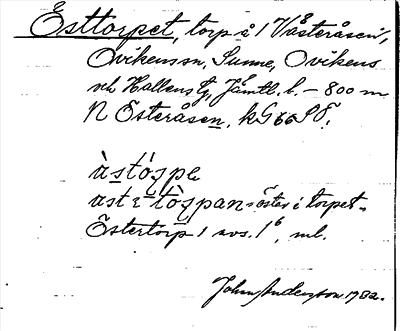 Esttorpet, torp å 1 Västeråsen,
Ovikens sn, Sunne, Ovikens
och Hallens tg, Jämtl. l. – 800 m
N Österåsen, kG 66 SÖ.
àstóʒpe
öster i torpet.
Östertorp 1 avs. 1⁶, ml.
John Andersson 1932.